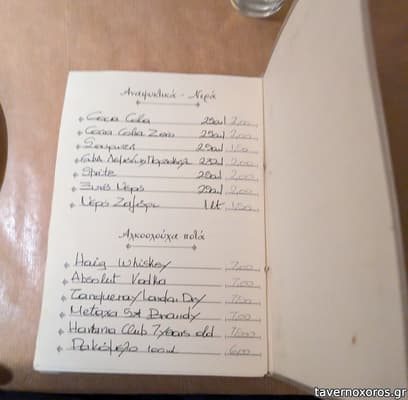 Αναψυκτικά - Νερά
Coca Cola 25cl 2,00
Coca Cola Zero 25cl 2,00
Σουρωτή 25cl 1,50
Γαλ. Λεμονίτα Πορτοκαλ. 25cl 2,00
Sprite 25cl 2,00
Ξυνό Νερό 25cl 2,00
Νερό Ζαγόρι 1 lt 1,50
Αλκοολούχα ποτά
Haig Whiskey 7,00
Absolut Vodka 7,00
Tanqueray London Dry
Metaxa 5* Brandy 7,00
Havana Club 7 years old
Ρακόμελο 100ml 6,00
tavernoxoros.gr